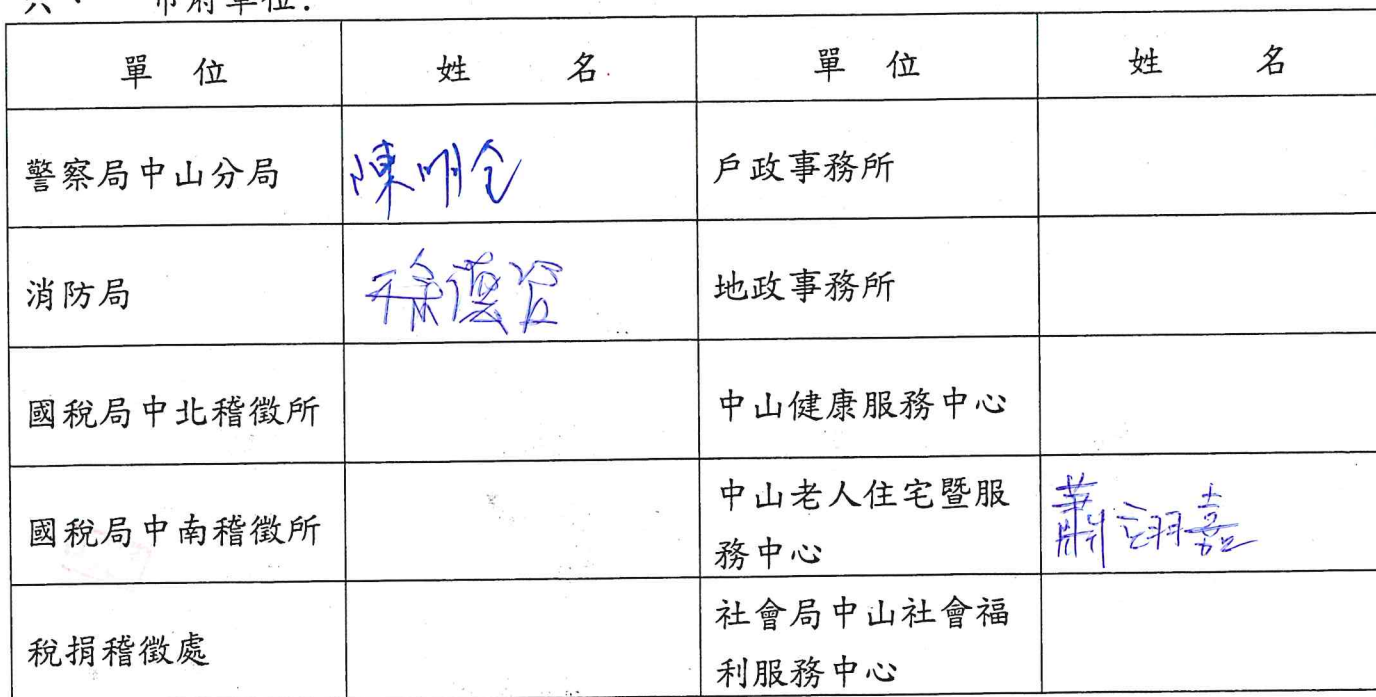 六、 市府單位:
單 位 姓 名 單 位 姓 名
警察局中山分局 陳明全 戶政事務所
消防局 地政事務所
國稅局中北稽徵所 中山健康服務中心
國稅局中南稽徵所 中山老人住宅暨服
務中心 蕭翊嘉
稅捐稽徵處 社會局中山社會福
利服務中心